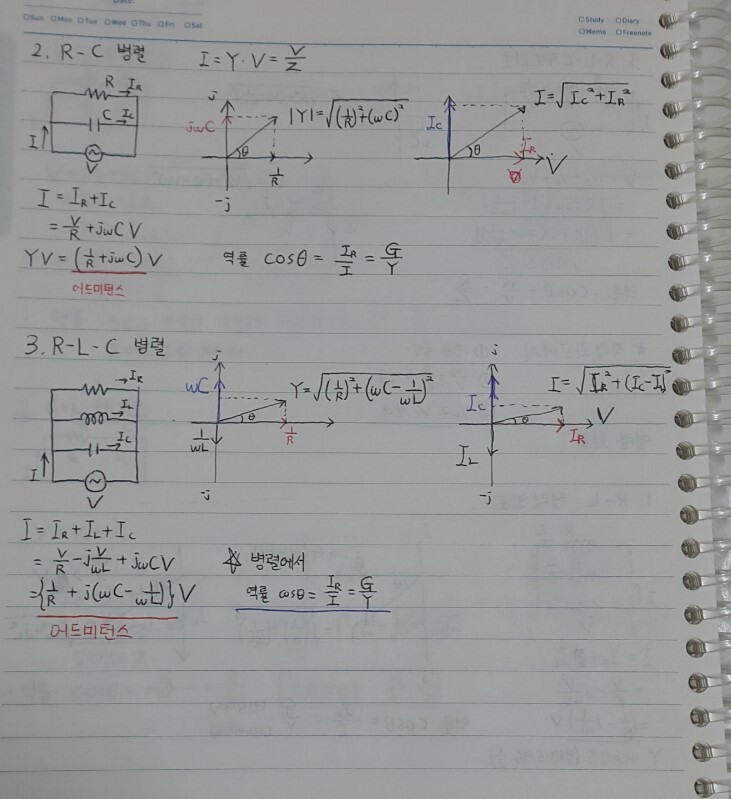 Date.
□Sun □Mon □Tue □Wed □Thu □Fri □Sat
□Study □Diary
□Memo □Freenote
2. R-C 병렬 I = Y·V = V/Z
R I_R
C I_C
I
V
j
jωC
|Y| = √((1/R)²+(ωC)²)
θ
1/R
-j
I_C
I = √(I_C²+I_R²)
θ
I_R
V
I = I_R + I_C
= V/R + jωCV
YV = (1/R + jωC) V
어드미턴스
역률 cosθ = I_R/I = G/Y
3. R-L-C 병렬
I_R
I_L
I_C
I
V
j
ωC
Y = √((1/R)²+(ωC-1/ωL)²)
θ
1/ωL
1/R
-j
j
I_C
I = √(I_R²+(I_C-I_L)²)
θ
V
I_R
I_L
-j
I = I_R + I_L + I_C
= V/R - jV/ωL + jωCV
= {1/R + j(ωC-1/ωL)} V
어드미턴스
☆ 병렬에서
역률 cosθ = I_R/I = G/Y